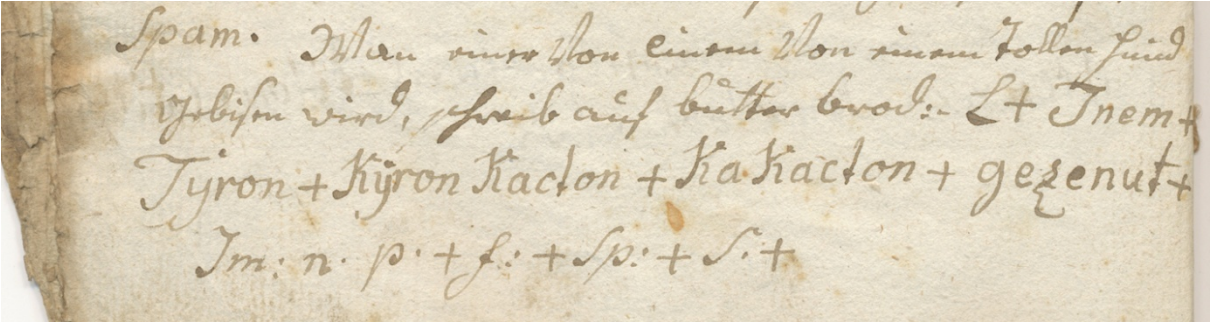 Spam. Wan einer Von einem Von einem tollen hund
gebisen wird, schreib auf butter brod:- L+ Jnem+
Tÿron + Kÿron Kacton + Ka Kacton + gezenut+
Jm: n. p. + f: + Sp: + S. +